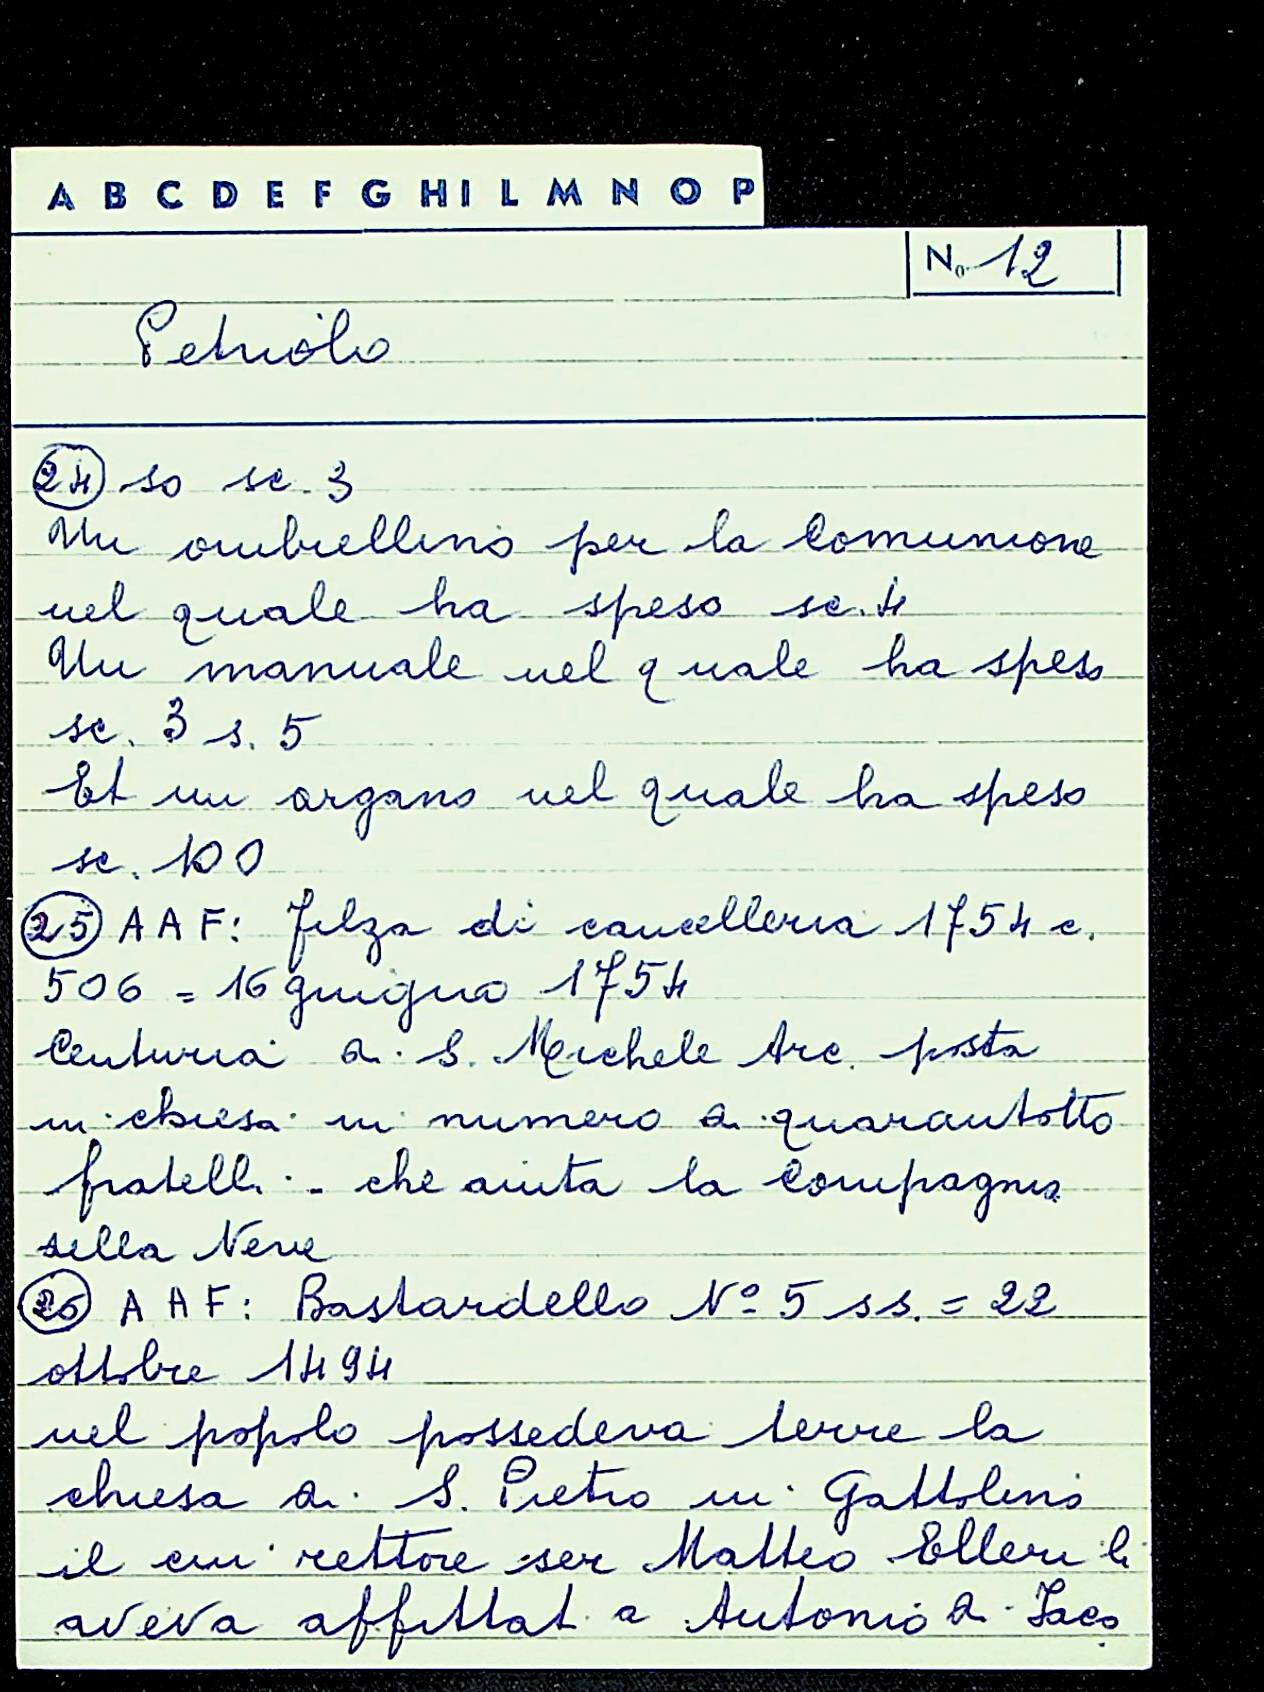 A B C D E F G H I L M N O P
No. 12
Petriolo
24 so sc. 3
Un ombrellino per la Comunione
nel quale ha speso sc. 4
Un manuale nel quale ha speso
sc. 3 s. 5
Et un organo nel quale ha speso
sc. 100
25 A A F: Filza di cancelleria 1754 c.
506 = 16 giugno 1754
Centuria di S. Michele Arc. posta
in chiesa in numero di quarantotto
fratelli - che aiuta la Compagnia
della Neve
26 A A F: Bastardello Nº 5 ss. = 22
ottobre 1494
nel popolo possedeva terre la
chiesa di S. Pietro in Gattolino
il cui rettore ser Matteo Elleri li
aveva affittati a Antonio di Iaco